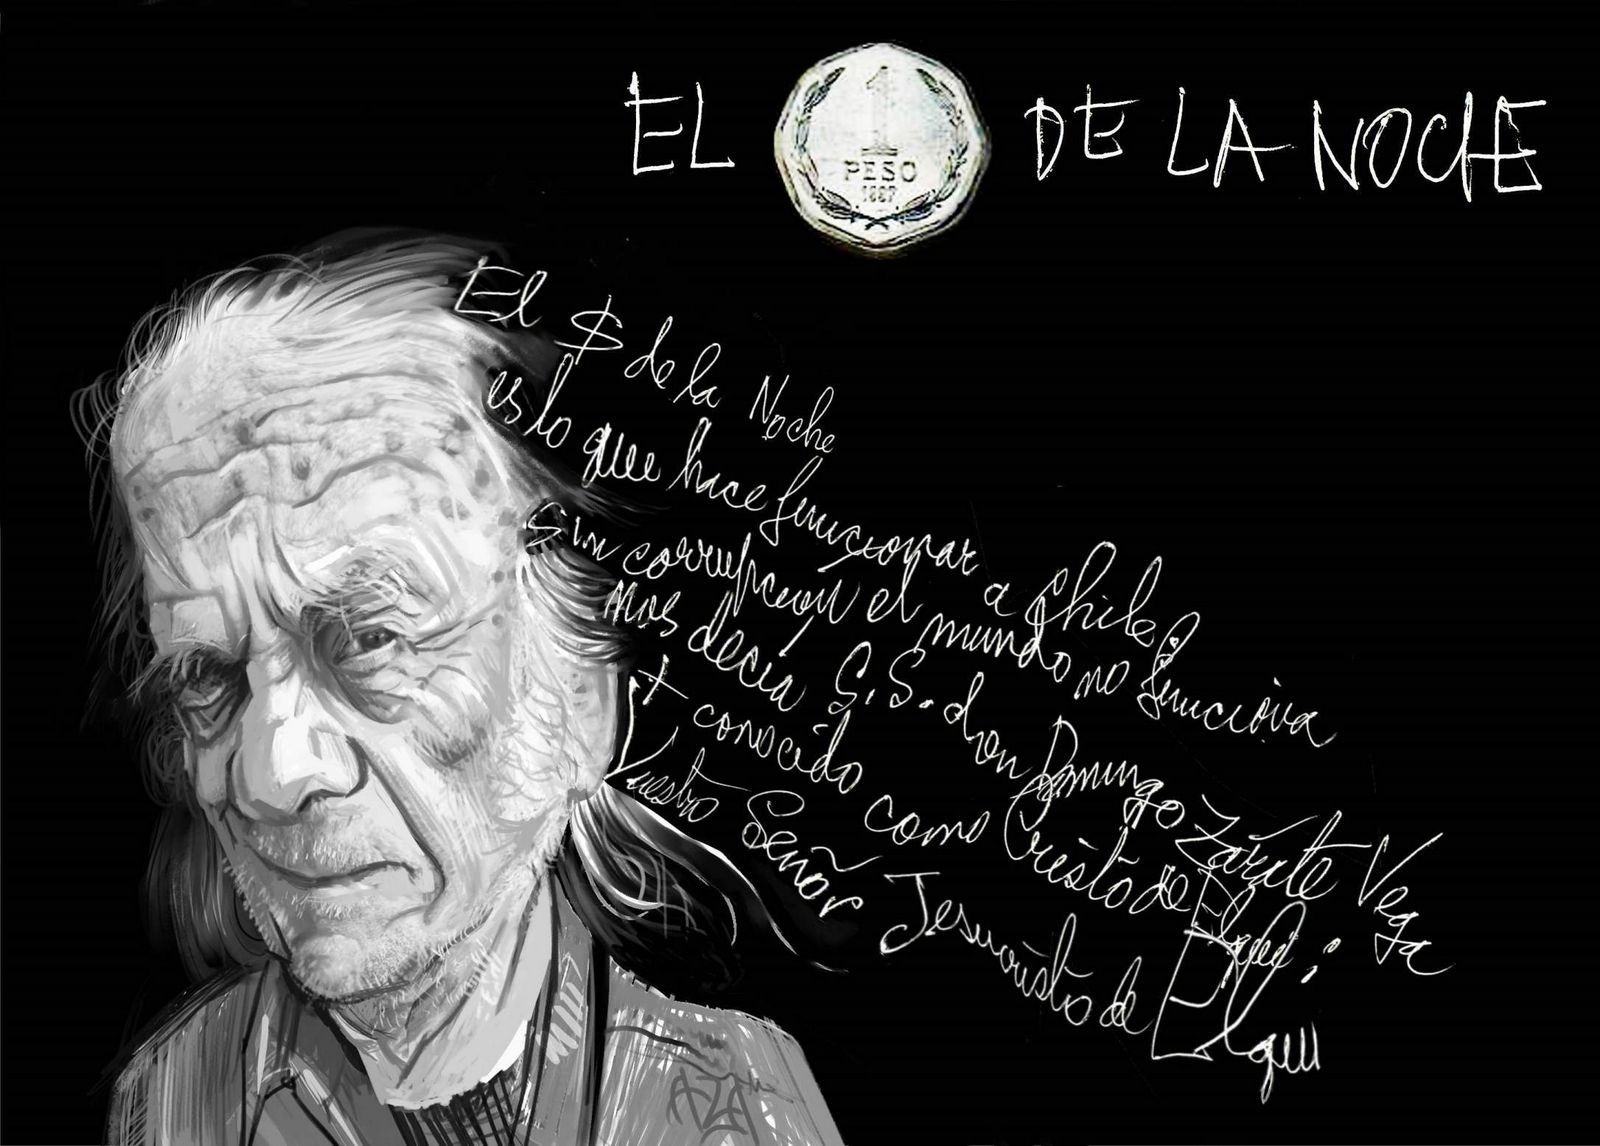 EL
1
PESO
1987
DE LA NOCHE
El $ de la Noche
es lo que hace funcionar a Chile!
Sin corrupción el mundo no funciona
nos decía S.S. don Domingo Zárate Vega
+ conocido como Cristo de Elqui:
Nuestro Señor Jesucristo de Elqui
AZA